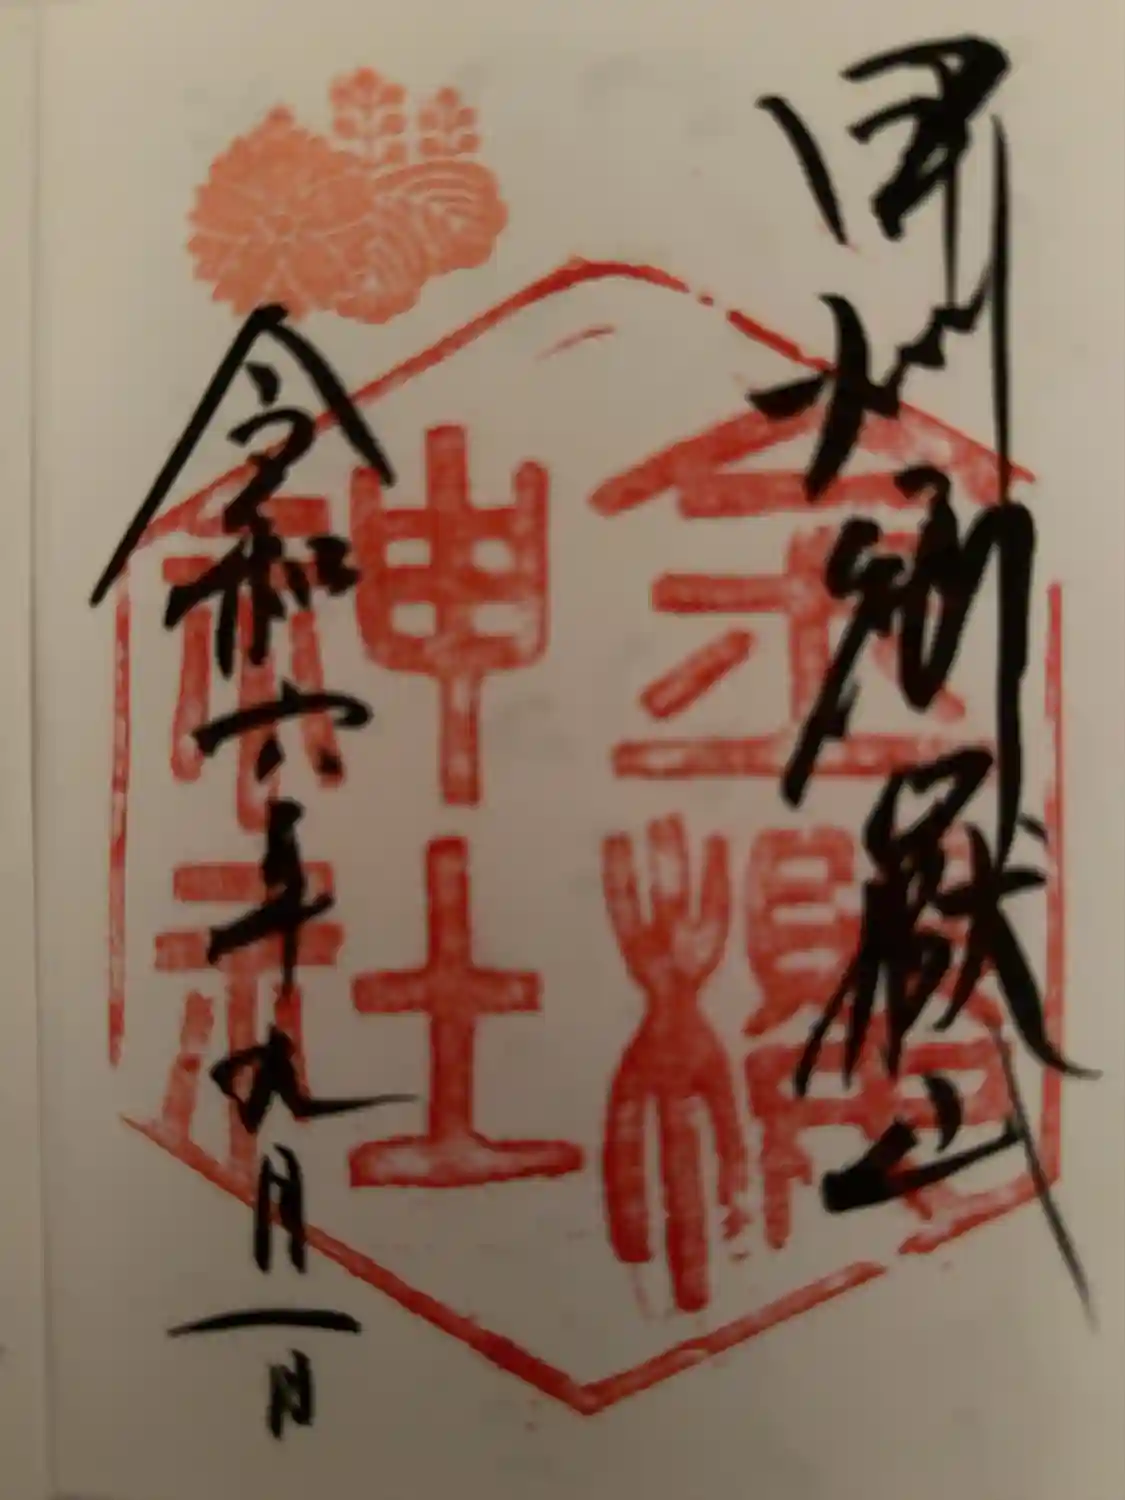 甲州御嶽山
金櫻
神社
令和六年九月一日